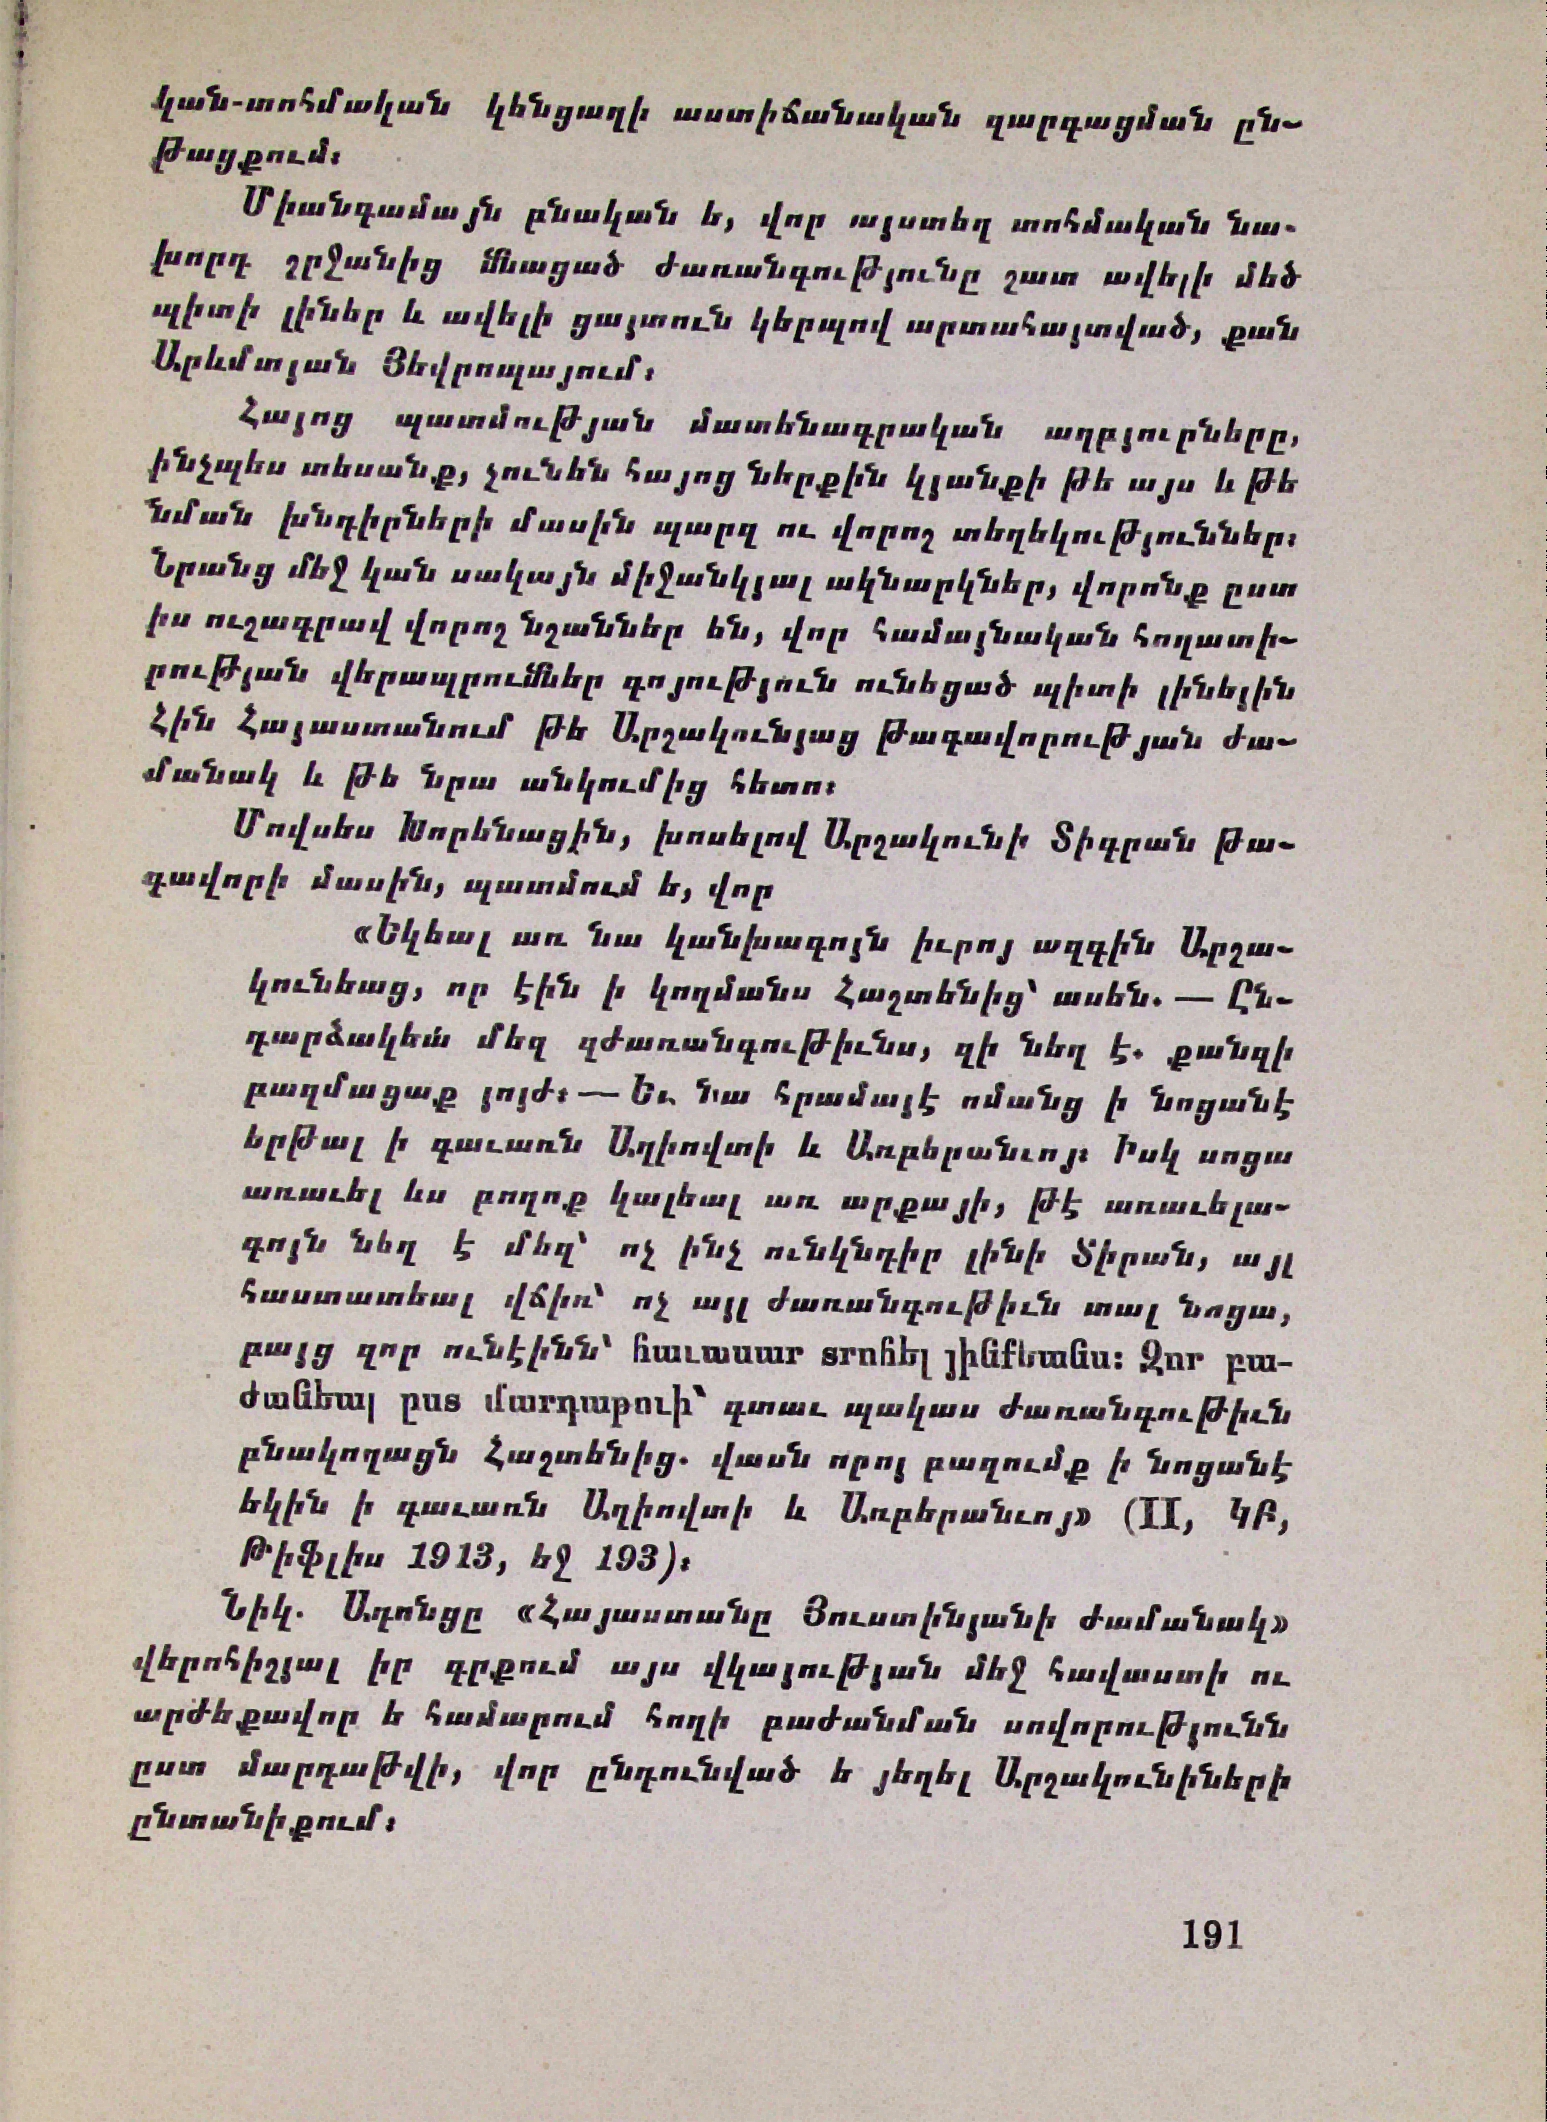 կան-տոհմական կենցաղի աստիճանական զարգացման ըն-
թացքում։
Միանգամայն բնական ե, վոր այստեղ տոհմական նա-
խորդ շրջանից մնացած ժառանգությունը շատ ավելի մեծ
պիտի լիներ և ավելի ցայտուն կերպով արտահայտված, քան
Արևմտյան Յեվրոպայում։
Հայոց պատմության մատենագրական աղբյուրները,
ինչպես տեսանք, չունեն հայոց ներքին կյանքի թե այս և թե
նման խնդիրների մասին պարզ ու վորոշ տեղեկություններ։
Նրանց մեջ կան սակայն միջանկյալ ակնարկներ, վորոնք ըստ
իս ուշագրավ վորոշ նշաններ են, վոր համայնական հողատի-
րության վերապրումներ գոյություն ունեցած պիտի լինելին
Հին Հայաստանում թե Արշակունյաց թագավորության ժա-
մանակ և թե նրա անկումից հետո։
Մովսես Խորենացին, խոսելով Արշակունի Տիգրան թա-
գավորի մասին, պատմում ե, վոր
«Եկեալ առ նա կանխագոյն իւրոյ ազգին Արշա-
կունեաց, որ էին ի կողմանս Հաշտենից՝ ասեն. — Ըն-
դարձակեա՛ մեզ զժառանգութիւնս, զի նեղ է. քանզի
բազմացաք յոյժ։ — Եւ նա հրամայէ ոմանց ի նոցանէ
երթալ ի գաւառն Աղիովտի և Առբերանւոյ։ Իսկ սոցա
առաւել ևս բողոք կալեալ առ արքայի, թէ առաւելա-
գոյն նեղ է մեզ՝ ոչ ինչ ունկնդիր լինի Տիրան, այլ
հաստատեալ վճիռ՝ ոչ այլ ժառանգութիւն տալ նոցա,
բայց զոր ունէինն՝ հաւասար տրոհել յինքեանս։ Զոր բա-
ժանեալ ըստ մարդաթուի՝ գտաւ պակաս ժառանգութիւն
բնակողացն Հաշտենից. վասն որոյ բազումք ի նոցանէ
եկին ի գաւառն Աղիովտի և Առբերանւոյ» (II, ԿԲ,
Թիֆլիս 1913, եջ 193)։
Նիկ. Ադոնցը «Հայաստանը Յուստինյանի ժամանակ»
վերոհիշյալ իր գրքում այս վկայության մեջ հավաստի ու
արժեքավոր ե համարում հողի բաժանման սովորությունն
ըստ մարդաթվի, վոր ընդունված ե յեղել Արշակունիների
ընտանիքում։
191